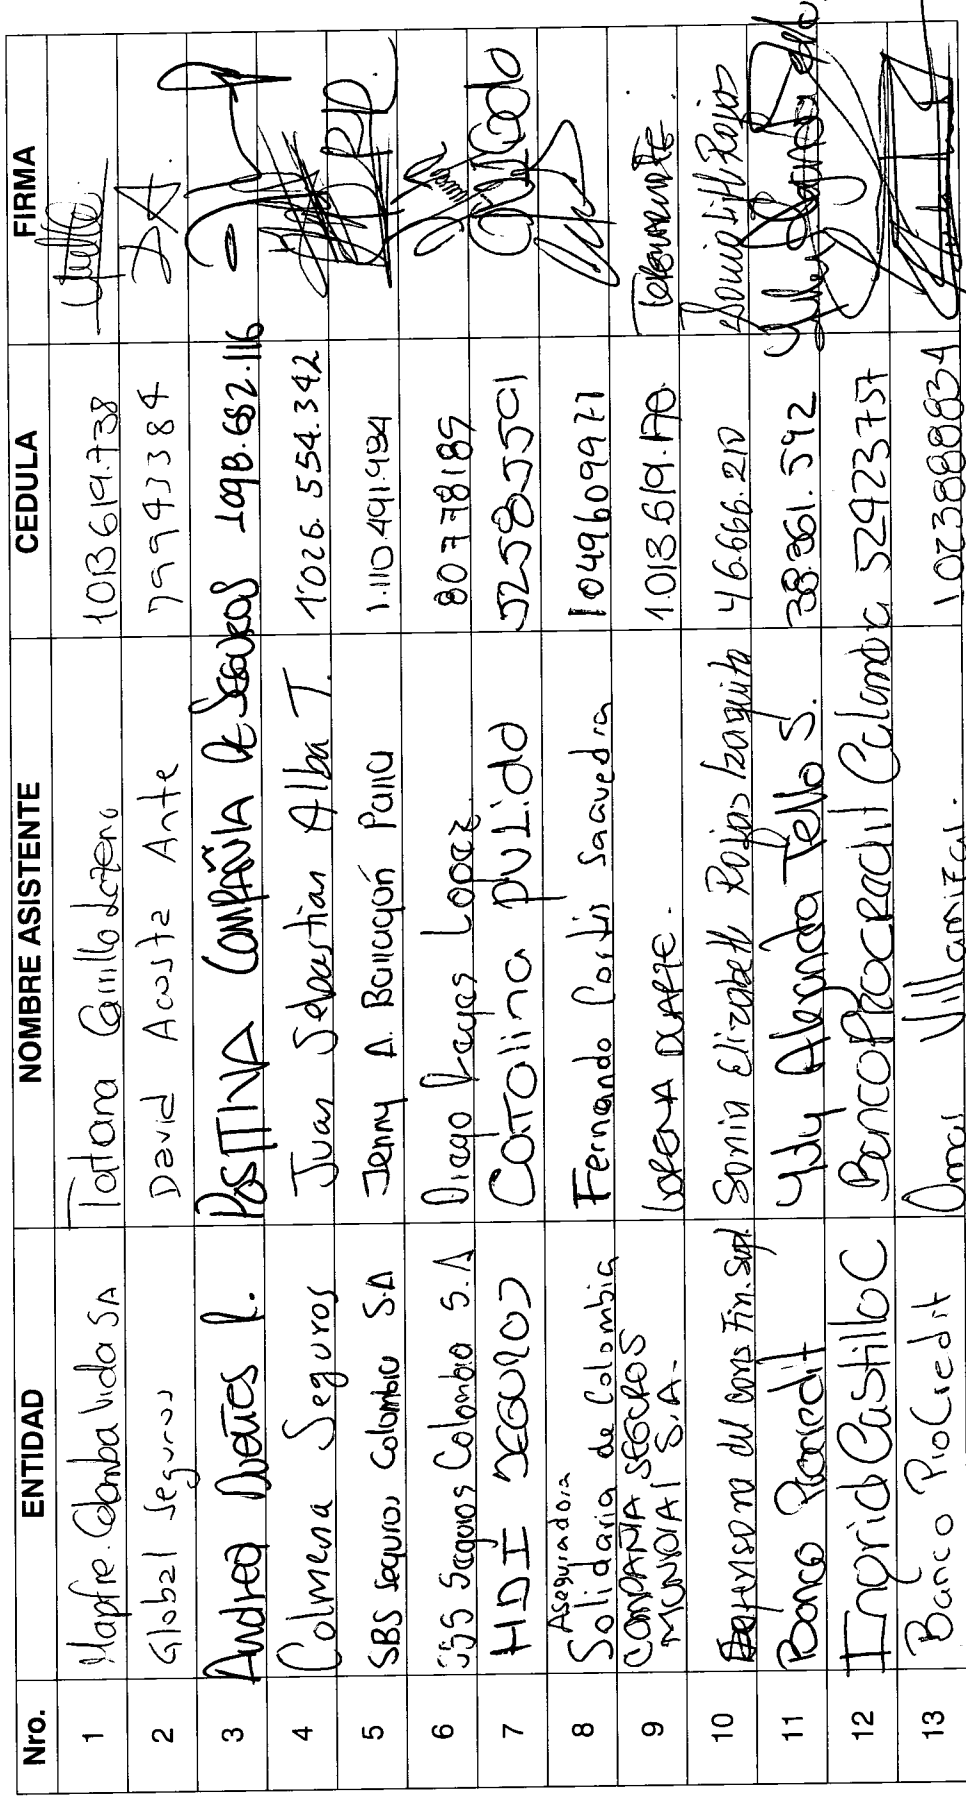 Nro. ENTIDAD NOMBRE ASISTENTE CEDULA FIRMA
1 Mapfre Colombia Vida SA Tatiana Camillo 1013619.738
2 Global Seguros David Acosta Ante 79943384
3 Andrea Dueñes R. POSITIVA COMPAÑIA DE SEGUROS 1098.682.116
4 Colmena Seguros Juan Sebastian Alba T. 1'026.554.342
5 SBS Seguros Colombia S.A Jenny A. Barragón Parra 1.110.491.994
6 SBS Seguros Colombia S.A Diego Rayas Lopez 80778189
7 HDI SEGUROS Catalina PULido 52585501
8 Aseguradora Solidaria de Colombia Fernando Cortis Saavedra 1049609971
9 COMPAÑIA SEGUROS MUNDIAL S.A. LORENA DUARTE. 1.013.619.170 LORENADUARTE
10 Defensoria del cons Fin. Supl. Sonia Elizabeth Rojas Izaquita 46.666.210 Sonia Lizth Rojas
11 Banco Procredit Yuly Alejandra Tello S. 38.361.592
12 Ingrid Castillo C Banco Procredit Colombia 52423757
13 Banco ProCredit Omar Villamizar. 1.023888834